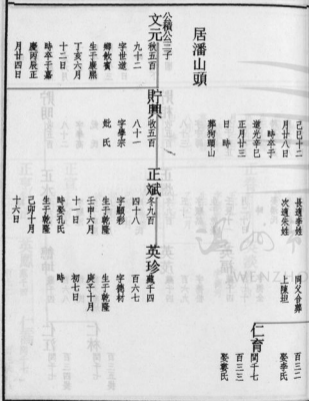 居潘山頭
公積公三子
文元
秋五百
九十二
字世道
鄉飲賓
生于康熙
丁亥六月
十二日
時卒于嘉
慶丙辰正
月廿四日
貯興
收五百
八十一
字學宗
氏
正斌
冬九百
四十八
字顯彩
生于乾隆
壬申六月
十一日
時娶孔氏
生于乾隆
己卯十月
十六日
英珍
藏千四
百六七
字德材
生于乾隆
庚子十月
初七日
時
己巳十二
月廿八日
時卒于
道光辛巳
正月廿三
日 時
葬狗頭山
長適李姓
次適朱姓
同父合葬
上陳垣
仁育
閏千七
百三三
娶婁氏
百三二
娶辛氏
WENZH